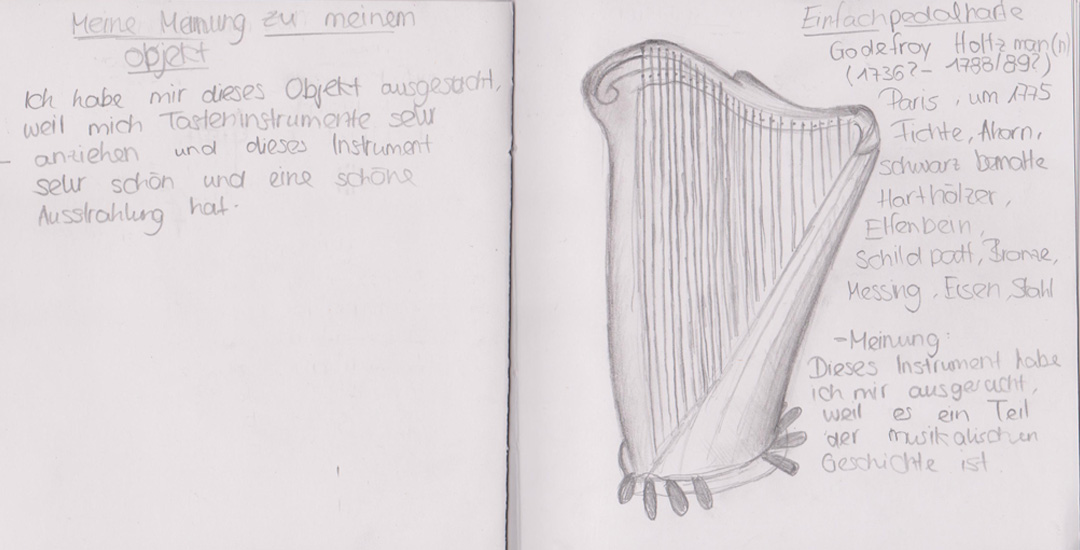 Meine Meinung zu meinem
Objekt
Ich habe mir dieses Objekt ausgesucht,
weil mich Tasteninstrumente sehr
anziehen und dieses Instrument
sehr schön und eine schöne
Ausstrahlung hat.
Einfachpedalharfe
Godefroy Holtzman(n)
(1736?- 1788/89?)
Paris, um 1775
Fichte, Ahorn,
schwarz bemalte
Harthölzer,
Elfenbein,
Schildpatt, Bronze,
Messing, Eisen, Stahl
- Meinung:
Dieses Instrument habe
ich mir ausgesucht,
weil es ein Teil
der musikalischen
Geschichte ist